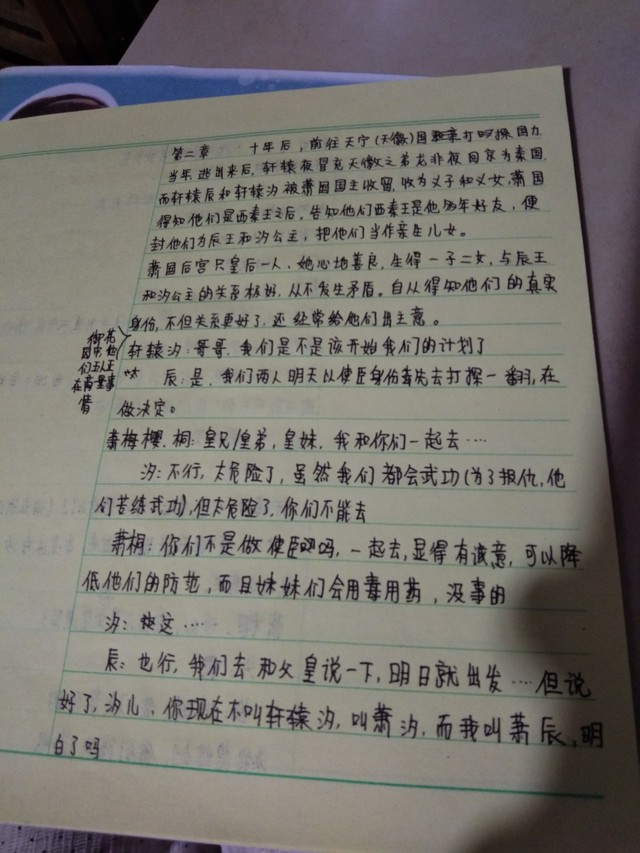 第二章 十年后，前往天宁(天徽)国打探国力
当年逃出来后，轩辕夜冒充天徽之弟龙非夜回京为秦国，
而轩辕辰和轩辕汐被萧国国主收留，收为义子和义女，萧国
得知他们是西秦王之后，告知他们西秦王是他多年好友，便
封他们为辰王和汐公主，把他们当作亲生儿女。
萧国后宫只皇后一人，她心地善良，生得一子二女，与辰王
和汐公主的关系极好，从不发生矛盾。自从得知他们的真实
身份，不但关系更好了，还经常给他们出主意。
御花
园中他
们五人正
在商量事
情
轩辕汐：哥哥，我们是不是该开始我们的计划了
辰：是，我们两人明天以使臣身份率先去打探一翻，在
做决定。
萧梅樱、桐：皇兄/皇弟，皇妹，我和你们一起去…
汐：不行，太危险了，虽然我们都会武功(为了报仇，他
们苦练武功)，但太危险了，你们不能去
萧桐：你们不是做使臣吗，一起去，显得有诚意，可以降
低他们的防范，而且妹妹们会用毒用药，没事的
汐：这…
辰：也行，我们去和父皇说一下，明日就出发…但说
好了，汐儿，你现在不叫轩辕汐，叫萧汐，而我叫萧辰，明
白了吗